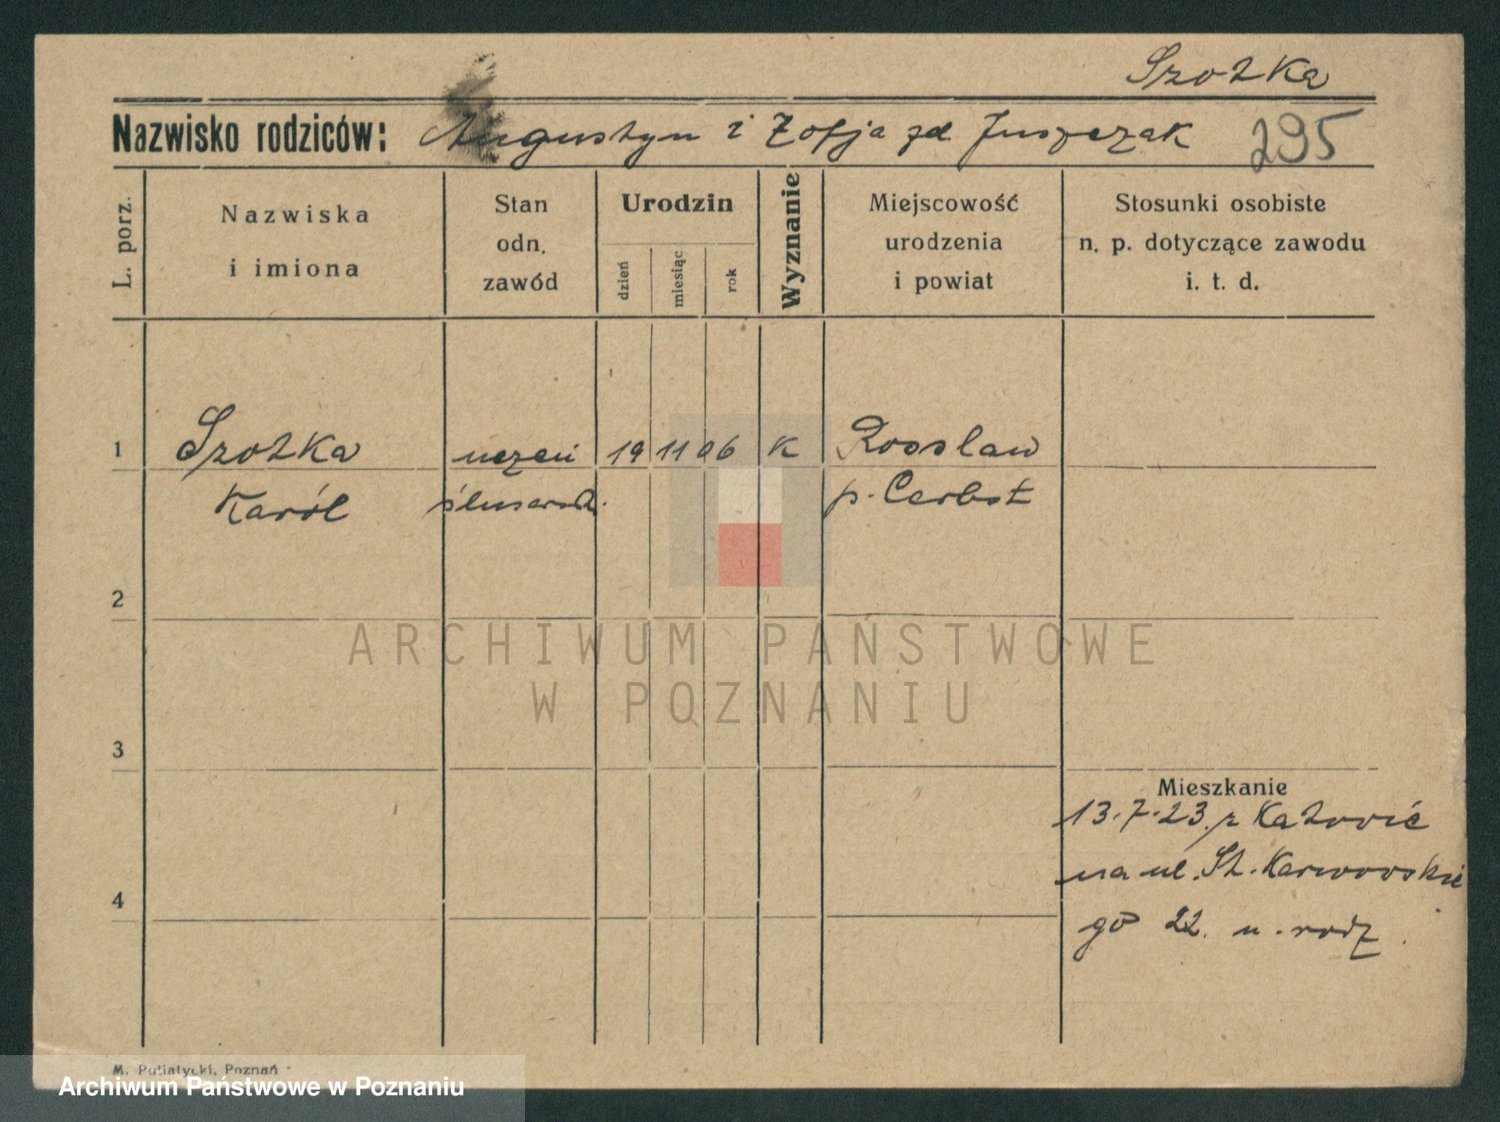 Szotka
Nazwisko rodziców: Augustyn i Zofja zd. Juszczak 295
L. porz.
Nazwiska
i imiona
Stan
odn.
zawód
Urodzin
dzień
miesiąc
rok
Wyznanie
Miejscowość
urodzenia
i powiat
Stosunki osobiste
n. p. dotyczące zawodu
i. t. d.
1 Szotka uczeń 19 11 06 K Rosslaw
Karól ślusarsk. p. Cerbst
2
3
Mieszkanie
13.7.23. z Katowic
na ul. St. Karwowskie
4
go 22. u. rodz.
ARCHIWUM PAŃSTWOWE
W POZNANIU
M. Putiatycki, Poznań
Archiwum Państwowe w Poznaniu